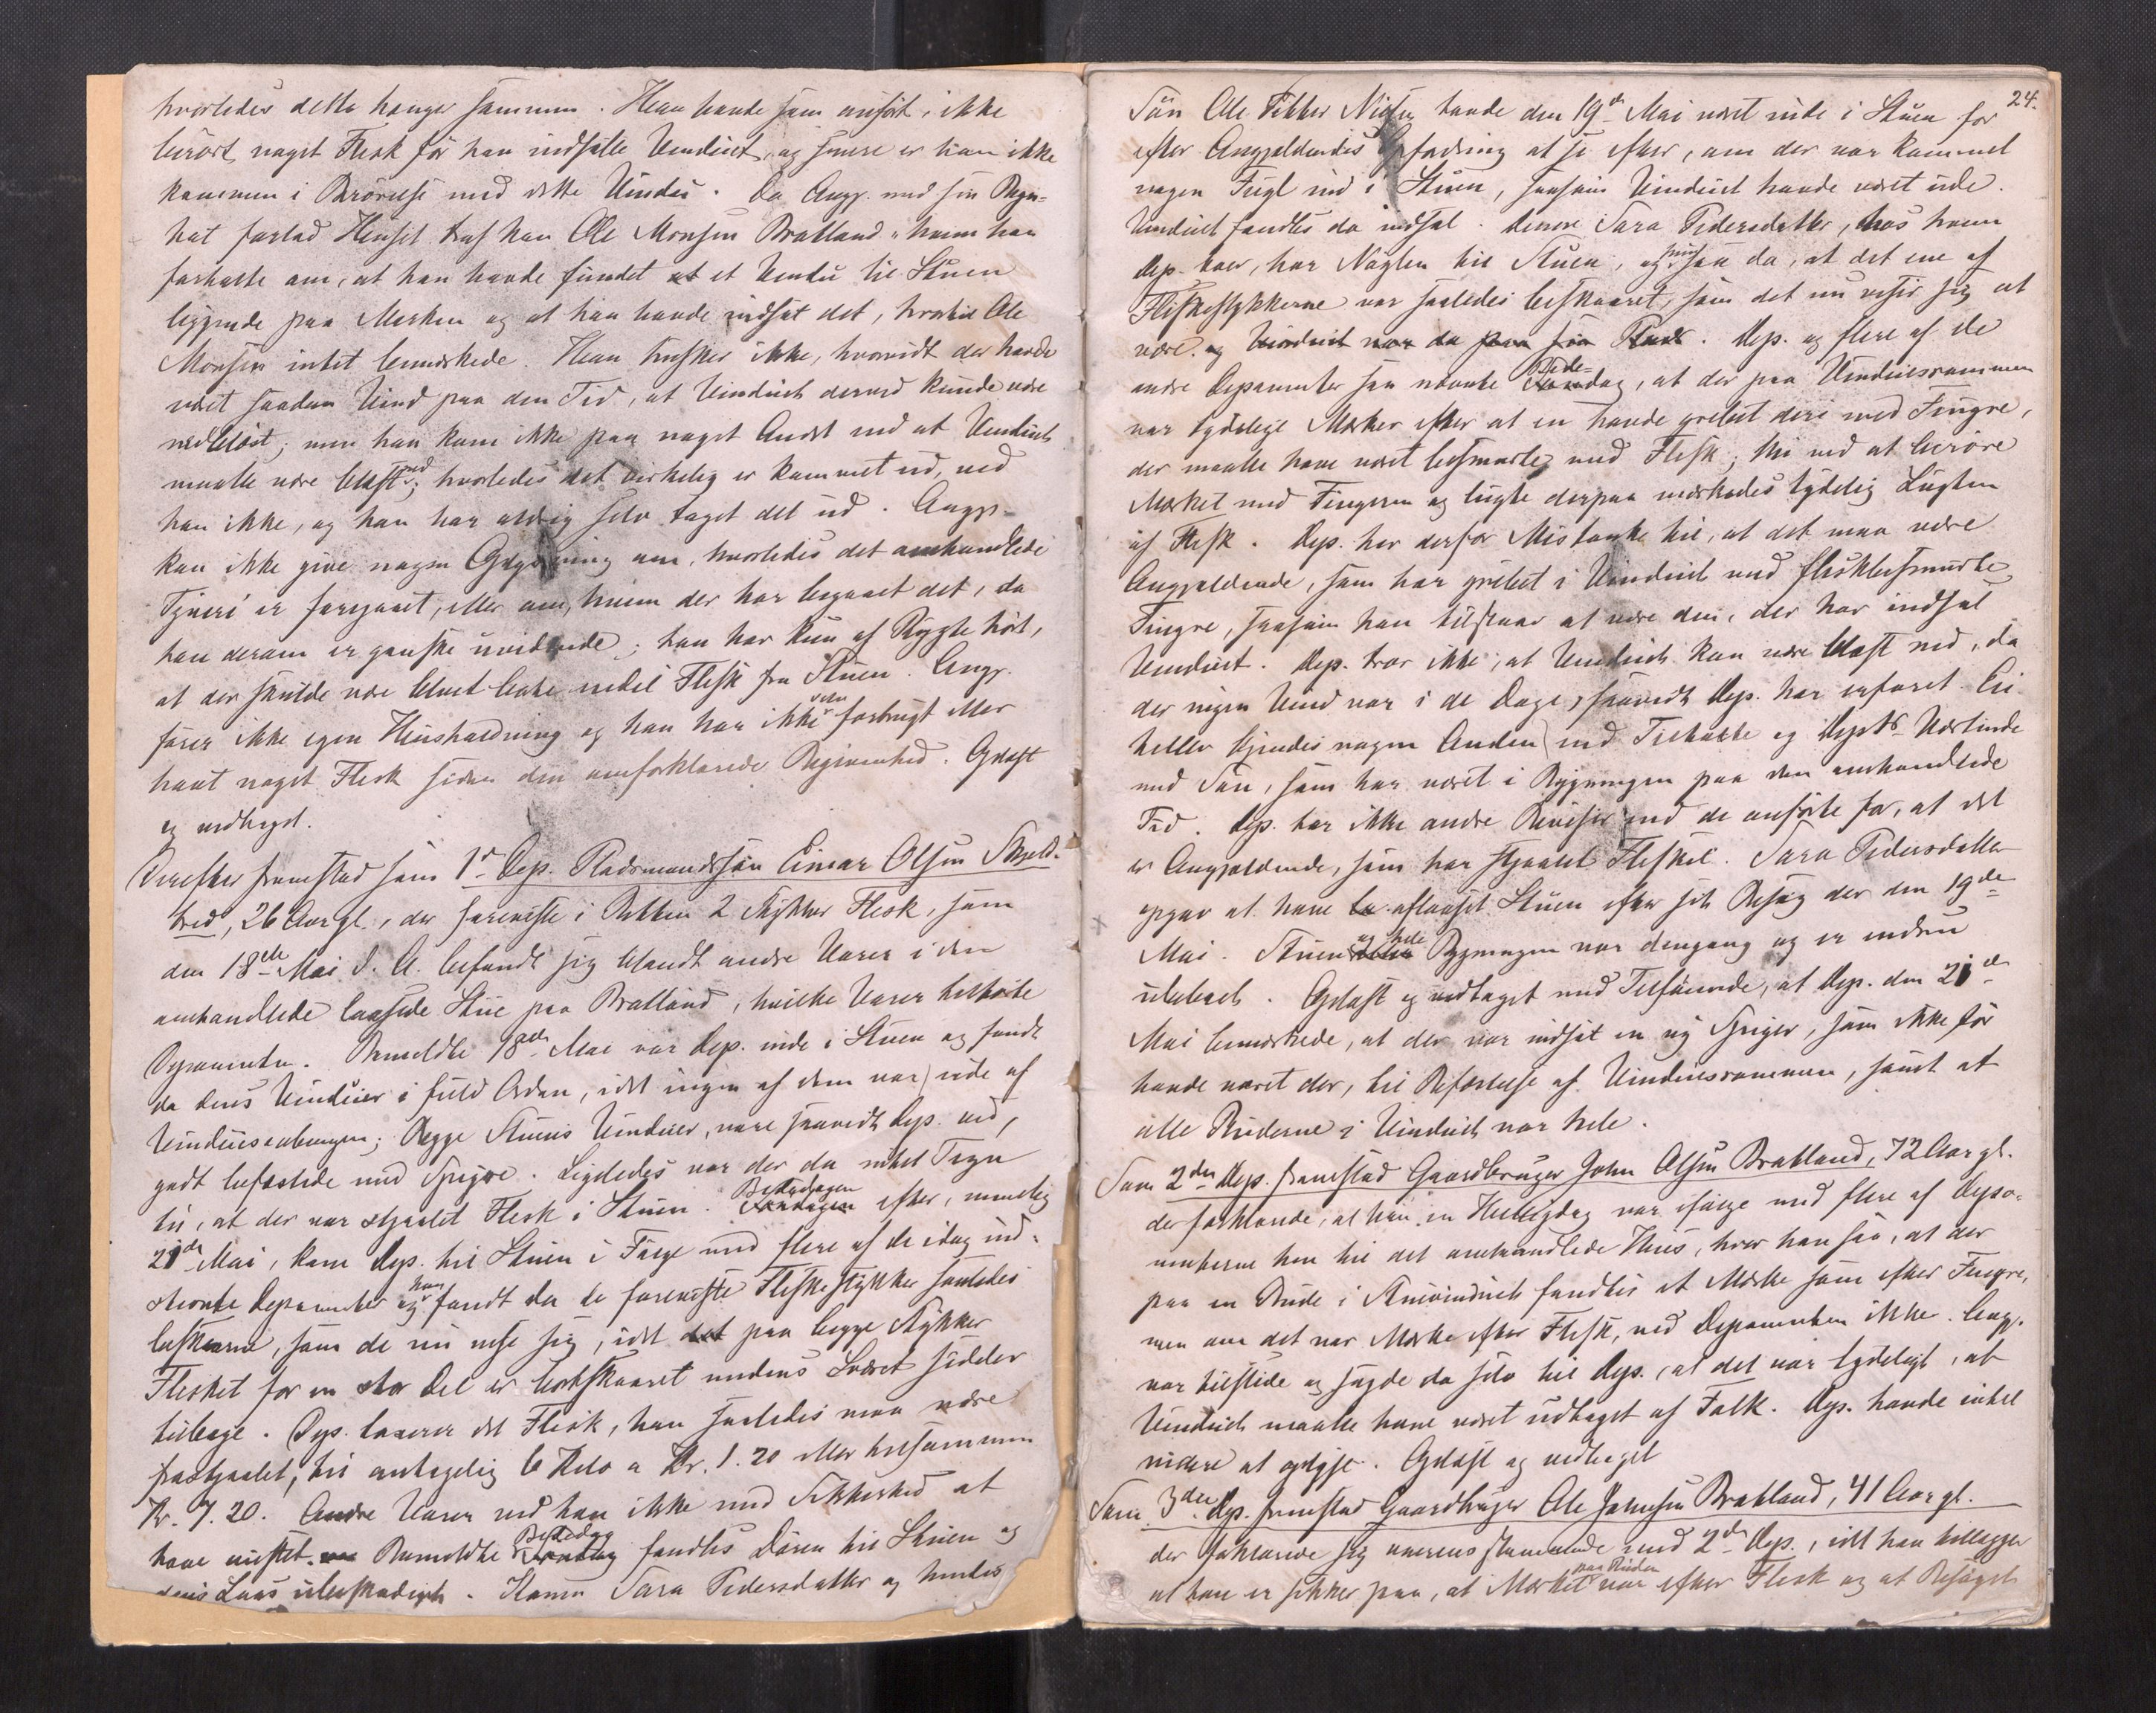 hvorledes dette hænger sammen. Han havde som anført, ikke
berørt noget Flesk før han indsatte Vinduet, og senere er han ikke
kommen i Berørelse med dette Vindu. Da Angj. med sin Regn-
hat forlod Huset traf han Ole Monsen Bratland, hvem han
fortalte om, at han havde fundet et Vindu til Stuen
liggende paa Marken og at han havde indsat det, hvortil Ole
Monsen intet bemærkede. Han husker ikke, hvorvidt der havde
været saadan Vind paa den Tid, at Vinduet derved kunde være
nedblæst; men han kom ikke paa noget Andet end at Vinduet
maatte være blæst ned; hvorledes det virkelig er kommet ud, ved
han ikke, og han har aldrig selv taget det ud. Angj.
kan ikke give nogen Oplysning om, hvorledes det omhandlede
Tyveri er foregaaet, eller om, hvem der har begaaet det, da
han derom er ganske uvidende; han har kun af Rygte hørt,
at der skulde være blevet borte endel Flesk fra Stuen. Angj.
fører ikke egen Husholdning og han har ikke forbrugt eller
havt noget Flesk siden den omforklarede Begivenhed. Oplæst
og vedtaget.
Derefter fremstod som 1ste Dep. Pladsmandssøn Einar Olsen
26 Aar gl., der foreviste i Retten 2 Stykker Flesk, som
den 18de Mai d. A. befandt sig blandt andre Varer i den
omhandlede laasede Stue paa Bratland, hvilke Varer tilhørte
Deponenten. Bemeldte 18de Mai var Dep. inde i Stuen og fandt
da dens Vinduer i fuld Orden, idet ingen af dem var ude af
Vinduesaabningen; Begge Stuens Vinduer, vare saavidt Dep. ved,
godt befæstede med Spiger. Ligeledes var der da intet Tegn
til, at der var stjaalet Flesk i Stuen. Bededagen efter, nemlig
21de Mai, kom Dep. til Stuen i Følge med flere af de idag ind-
stevnte Deponenter og han fandt da de foreviste Fleskestykker saaledes
beskaarne, som de nu vise sig, idet det paa begge Stykker
Flesket for en stor Del er bortskaaret medens Sværet sidder
tilbage. Dep. taxerer det Flesk, han saaledes maa være
frastjaalet, til antagelig 6 Kilo a Kr. 1.20 eller tilsammen
Kr. 7.20. Andre Varer ved han ikke med Sikkerhed at
have mistet. Bemeldte Bededag fandtes Døren til Stuen og
dens Laas ubeskadiget. Konen Sara Pedersdatter og hendes
24.
Søn Ole havde den 19de Mai været inde i Stuen for
efter Angjældendes Opfordring at se efter, om der var kommet
nogen Fugl ind i Stuen, saasom Vinduet havde været ude.
Vinduet fandtes da indsat. Denne Sara Pedersdatter, hos hvem
Dep. boer, har Nøglen til Stuen, og hun saa da, at det ene af
Fleskestykkerne var saaledes beskaaret, som det nu viser sig at
være. og Vinduet var da paa sin Plads. Dep. og flere af de
andre Deponenter saa nævnte Bededag, at der paa Vinduesrammen
var tydelige Mærker efter at en havde grebet deri med Fingre,
der maatte have været besmurte med Flesk; thi ved at berøre
Mærket med Fingeren og lugte derpaa mærkedes tydelig Lugten
af Flesk. Dep. har derfor Mistanke til, at det maa være
Angjældende, som har grebet i Vinduet med fleskbesmurte
Fingre, saasom han tilstaar at være den, der har indsat
Vinduet. Dep. tror ikke, at Vinduet kan være blæst ned, da
der ingen Vind var i de Dage, saavidt Dep. har erfaret. Ei
heller kjendes nogen Anden end Tiltalte og Deptts Værtinde
med Søn, som har været i Bygningen paa den omhandlede
Tid. Dep. har ikke andre Beviser end de anførte for, at det
er Angjældende, som har stjaalet Flesket. Sara Pedersdatter
opgav at have aflaaset Stuen efter sit Besøg der den 19de
Mai. Stuen og hele Bygningen var dengang og er endnu
ubeboet. Oplæst og vedtaget med Tilføiende, at Dep. den 21de
Mai bemærkede, at der var indsat en ny Spiger, som ikke før
havde været der, til Befæstelse af Vinduesrammen, samt at
alle Ruderne i Vinduet var hele.
Som 2den Dep. fremstod Gaardbruger John Olsen Bratland, 72 Aar gl.
der forklarede, at han en Helligdag var ifølge med flere af Depo-
nenterne hen til det omhandlede Hus, hvor han saa, at der
paa en Rude i Stuevinduet fandtes et Mærke som efter Fingre,
men om det var Mærke efter Flesk, ved Deponenten ikke. Angj.
var tilstede og sagde da selv til Dep., at det var tydeligt, at
Vinduet maatte have været udtaget af Folk. Dep. havde intet
videre at oplyse. Oplæst og vedtaget
Som 3die Dep. fremstod Gaardbruger Ole Johnsen Bratland, 41 Aar gl.
der forklarede sig overensstemmende med 2den Dep., idet han tillægger
at han er sikker paa, at Mærket paa Ruden var efter Flesk og at Besøget